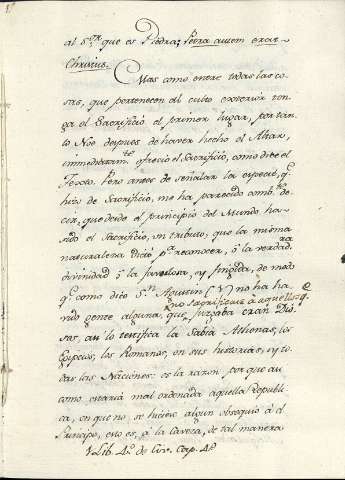 al S.or que es Piedra; Petra autem erat
Christus.
Mas como entre todas las co-
sas, que pertenecen al culto exterior ten-
ga el Sacrificio el primer lugar, por tan-
to Noe despues de haver hecho el Altar,
immediatam.te ofrecio el Sacrificio, como dice el
Texto. Pero antes de señalar la especie, q.e
hizo de Sacrificio, me ha parecido comb.te de-
cir, que desde el principio del Mundo ha
sido el Sacrificio, un tributo, que la misma
naturaleza dictò p.a reconocer, ò la verdad.ra
divinidad ò la favulosa, y fingida, de modo
q.e como dice S.n Agustin (V) no ha ha-
vido gente alguna, que no sagrificase à aquellos q.e juzgaba eran Dio-
ses, asi lo testifica la Sabia Athenas, los
Egipcios, los Romanos, en sus historias, y to-
das las Naciones: es la razon, por que asi
como estaria mal ordenada aquella Republi-
ca, en que no se hiciese algun obsequio à el
Principe, esto es, à la Caveza, de tal manera
V Lib. 4.o de Civ. Cap. 4.o